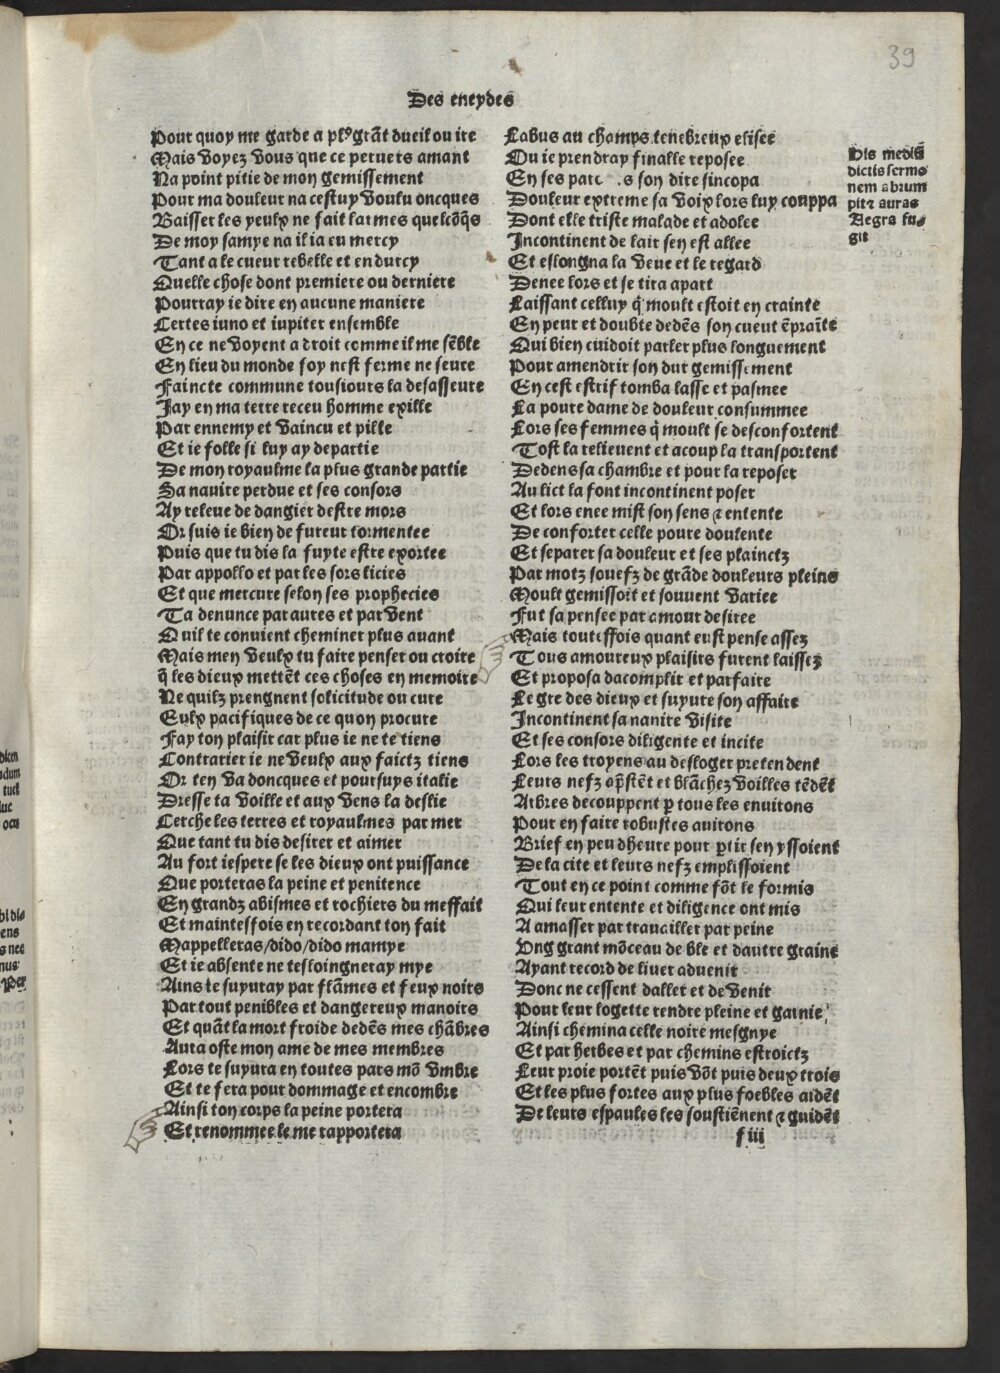 39
Des eneydes
Pour quoy me garde a plꝰ grãt dueil ou ire
Mais voyez vous que ce peruers amant
Na point pitie de mon gemissement
Pour ma douleur na cestuy voulu oncques
Baisser les yeulx ne fait larmes quelcõq̃s
De moy samye na il ia eu mercy
Tant a le cueur rebelle et endurcy
Quelle chose dont premiere ou derniere
Pourray ie dire en aucune maniere
Certes iuno et iupiter ensemble
En ce ne voyent a droit comme il me sẽble
En lieu du monde foy nest ferme ne seure
Faincte commune tousiours la desasseure
Jay en ma terre receu homme exille
Par ennemy et vaincu et pille
Et ie folle si luy ay departie
De mon royaulme la plus grande partie
Sa nauire perdue et ses consors
Ay releue de dangier destre mors
Or suis ie bien de fureur tormentee
Puis que tu dis la fuyte estre exortee
Par appollo et par les sors licies
Et que mercure selon ses prophecies
Ta denunce par aures et par vent
Quil te conuient cheminer plus auant
Mais men veulx tu faire penser ou croire
q̃ les dieux mettẽt ces choses en memoire
Ne quilz prengnent solicitude ou cure
Eulx pacifiques de ce quon procure
Fay ton plaisir car plus ie ne te tiens
Contrarier ie ne veulx aux faictz tiens
Or ten va doncques et poursuys italie
Dresse ta voille et aux vens la deslie
Cerche les terres et royaulmes par mer
Que tant tu dis desirer et aimer
Au fort iespere se les dieux ont puissance
Que porteras la peine et penitence
En grandz abismes et rochiers du meffait
Et maintesfois en recordant ton fait
Mappelleras/dido/dido mamye
Et ie absente ne tesloingneray mye
Ains te suyuray par flãmes et feux noirs
Par tout penibles et dangereux manoirs
Et quãt la mort froide dedẽs mes chãbres
Aura oste mon ame de mes membres
Lors te suyura en toutes pars mõ vmbre
Et te fera pour dommage et encombre
Ainsi ton corps la peine portera
Et renommee le me rapportera
Labus au champs tenebreux elisee
Ou ie prendray finalle reposee
En ses son dire sincopa
Douleur extreme sa voix lors luy couppa
Dont elle triste malade et adolee
Incontinent de lair sen est allee
Et eslongna la veue et le regard
Denee lors et se tira apart
Laissant celluy q̃ moult estoit en crainte
En peur et doubte dedẽs son cueur ẽprainte
Qui bien cuidoit parler plus longuement
Pour amendrir son dur gemissement
En cest estrif tomba lasse et pasmee
La poure dame de douleur consummee
Lors ses femmes q̃ moult se desconfortent
Tost la relieuent et acoup la transportent
Dedens sa chambre et pour la reposer
Au lict la font incontinent poser
Et lors enee mist son sens ⁊ entente
De conforter celle poure doulente
Et separer sa douleur et ses plainctz
Par motz souefz de grãde douleurs pleins
Moult gemissoit et souuent variee
Fut sa pensee par amour desiree
Mais toutesfois quant eust pense assez
Tous amoureux plaisirs furent laissez
Et proposa dacomplir et parfaire
Le gre des dieux et suyure son affaire
Incontinent sa nauire visite
Et ses consors diligente et incite
Lors les troyens au desloger pretendent
Leurs nefz ap̃stẽt et blãchez voilles tẽdẽt
Arbres decouppent ꝑ tous les enuirons
Pour en faire robustes auirons
Brief en peu dheure pour ꝑtir sen yssoient
De la cite et leurs nefz emplissoient
Tout en ce point comme fõt le formis
Qui leur entente et diligence ont mis
A amasser par trauailler par peine
Vng grant mõceau de ble et dautre graine
Ayant record de liuer aduenir
Donc ne cessent daller et de venir
Pour leur logette rendre pleine et garnie
Ainsi chemina celle noire mesgnye
Et par herbes et par chemins estroictz
Leur proie portẽt puis võt puis deux trois
Et les plus fortes aux plus foebles aidẽt
De leurs espaules les soustiẽnent ⁊ guidẽt
f iii
His mediũ
dictis sermo
nem abrum
pit⁊ auras
Aegra fu-
git